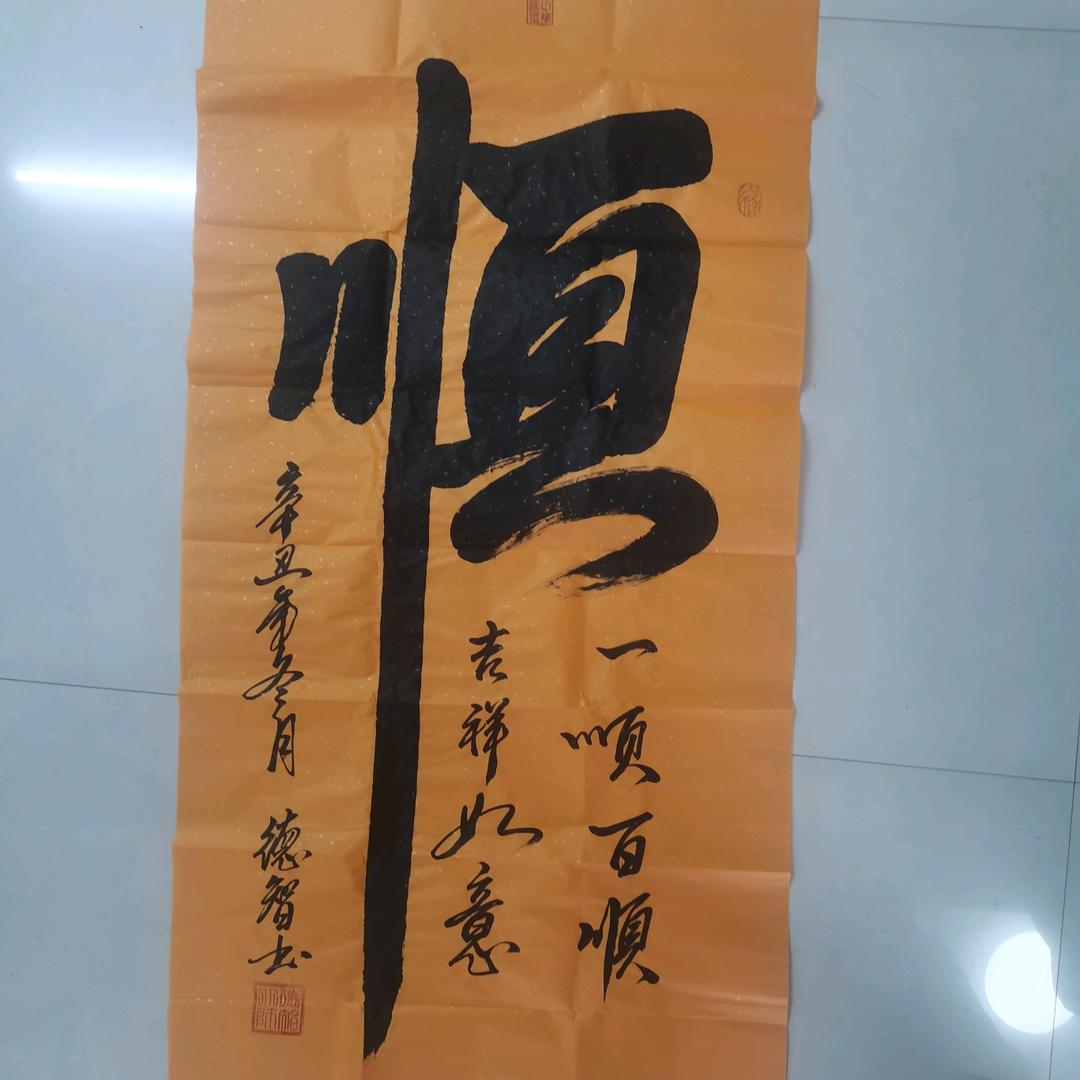 順
一順百順
吉祥如意
辛丑年冬月 德智书